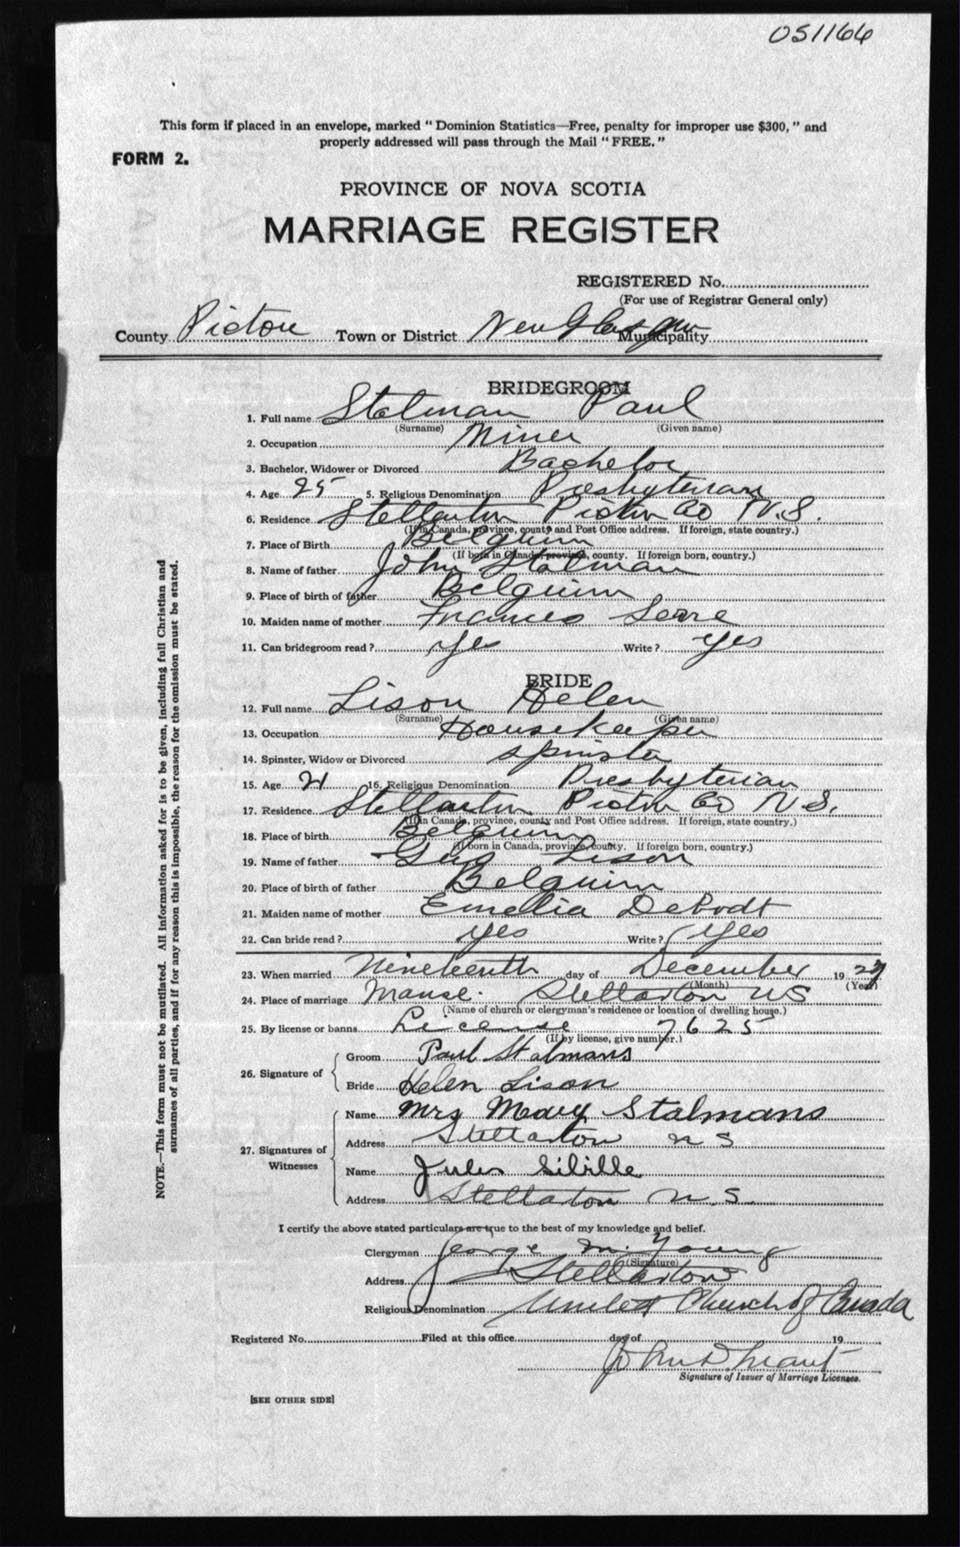 051166
This form if placed in an envelope, marked " Dominion Statistics—Free, penalty for improper use $300, " and
properly addressed will pass through the Mail " FREE. "
FORM 2.
PROVINCE OF NOVA SCOTIA
MARRIAGE REGISTER
REGISTERED No.
(For use of Registrar General only)
County Pictou Town or District New Glasgow Municipality
BRIDEGROOM
1. Full name Stalman Paul
(Surname) (Given name)
2. Occupation Miner
3. Bachelor, Widower or Divorced Bachelor
4. Age 25 5. Religious Denomination Presbyterian
6. Residence Stellarton Pictou Co N.S.
(If in Canada, province, county and Post Office address. If foreign, state country.)
7. Place of Birth Belguim
(If born in Canada, province, county. If foreign born, country.)
8. Name of father John Stalman
9. Place of birth of father Belguim
10. Maiden name of mother Frances
11. Can bridegroom read? yes Write? yes
BRIDE
12. Full name Lison Helen
(Surname) (Given name)
13. Occupation Housekeeper
14. Spinster, Widow or Divorced spinster
15. Age 21 16. Religious Denomination Presbyterian
17. Residence Stellarton Pictou Co N.S.
(If in Canada, province, county and Post Office address. If foreign, state country.)
18. Place of birth Belguim
(If born in Canada, province, county. If foreign born, country.)
19. Name of father Gus Lison
20. Place of birth of father Belguim
21. Maiden name of mother Emelia DeBodt
22. Can bride read? yes Write? yes
23. When married Nineteenth day of December 19
(Month) (Year)
24. Place of marriage Manse. Stellarton NS
(Name of church or clergyman's residence or location of dwelling house.)
25. By license or banns License 7625
(If by license, give number.)
26. Signature of
Groom Paul Stalmans
Bride Helen Lison
27. Signatures of Witnesses
Name Mrs Mary Stalmans
Address Stellarton N S
Name Jules Sibille
Address Stellarton N. S.
I certify the above stated particulars are true to the best of my knowledge and belief.
Clergyman George M. Young
(Signature)
Address Stellarton
Religious Denomination United Church of Canada
Registered No. Filed at this office day of 19
John D. Grant
Signature of Issuer of Marriage Licenses.
[SEE OTHER SIDE]
NOTE.—This form must not be mutilated. All information asked for is to be given, including full Christian and
surnames of all parties, and if for any reason this is impossible, the reason for the omission must be stated.